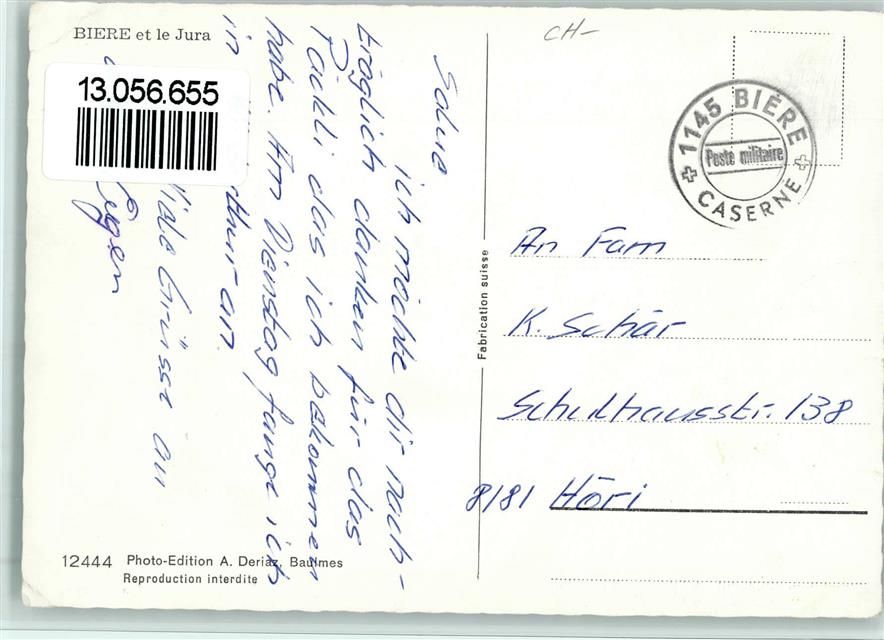 BIERE et le Jura
13.056.655
Salue
ich möchte dir nach-
träglich danken für das
Päckli das ich bekommen
habe. Am Dienstag fange ich
in thur an.
Viele Grüsse an
Eugen
12444 Photo-Edition A. Deriaz, Baulmes
Reproduction interdite
Fabrication suisse
CH-
1145 BIÈRE
Poste militaire
CASERNE
An Fam
K. Schär
Schulhausstr. 138
8181 Höri